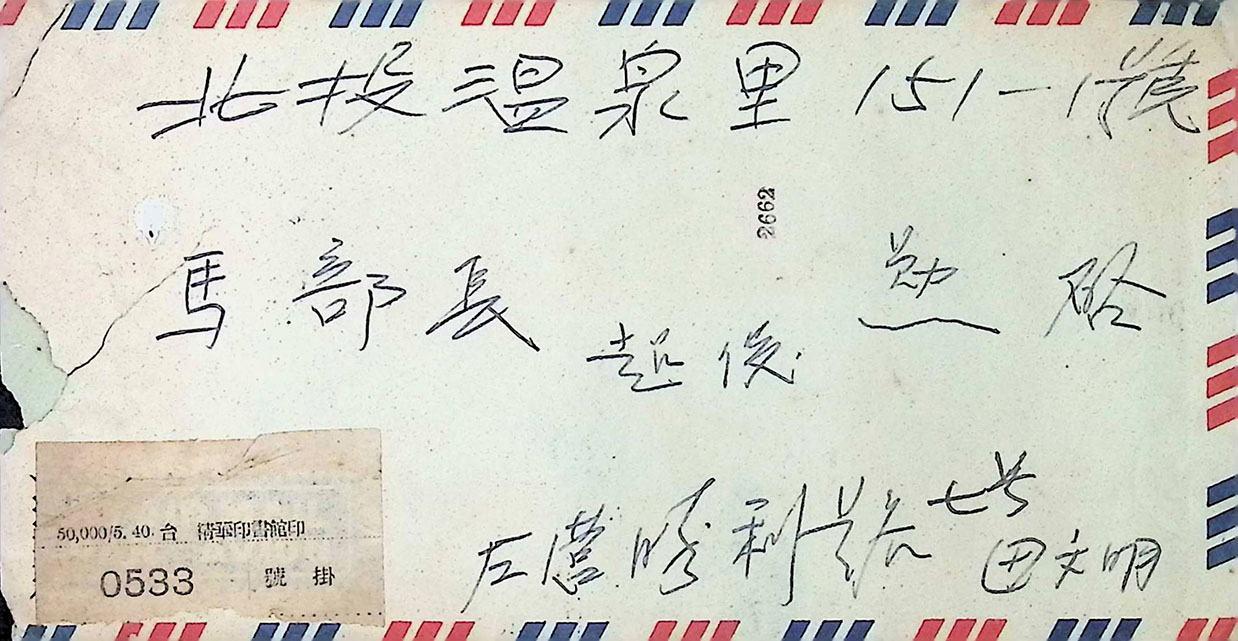 北投温泉里151-1號
2662
馬部長 勛啟
起俊
左營勝利路七号
田文明
50,000/5. 40. 台 清華印書館印
0533 號掛